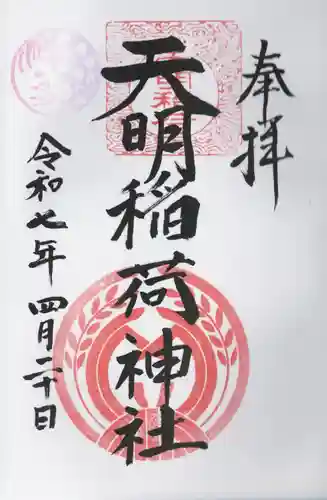 奉拝
天明稲荷神社
令和七年四月二十日